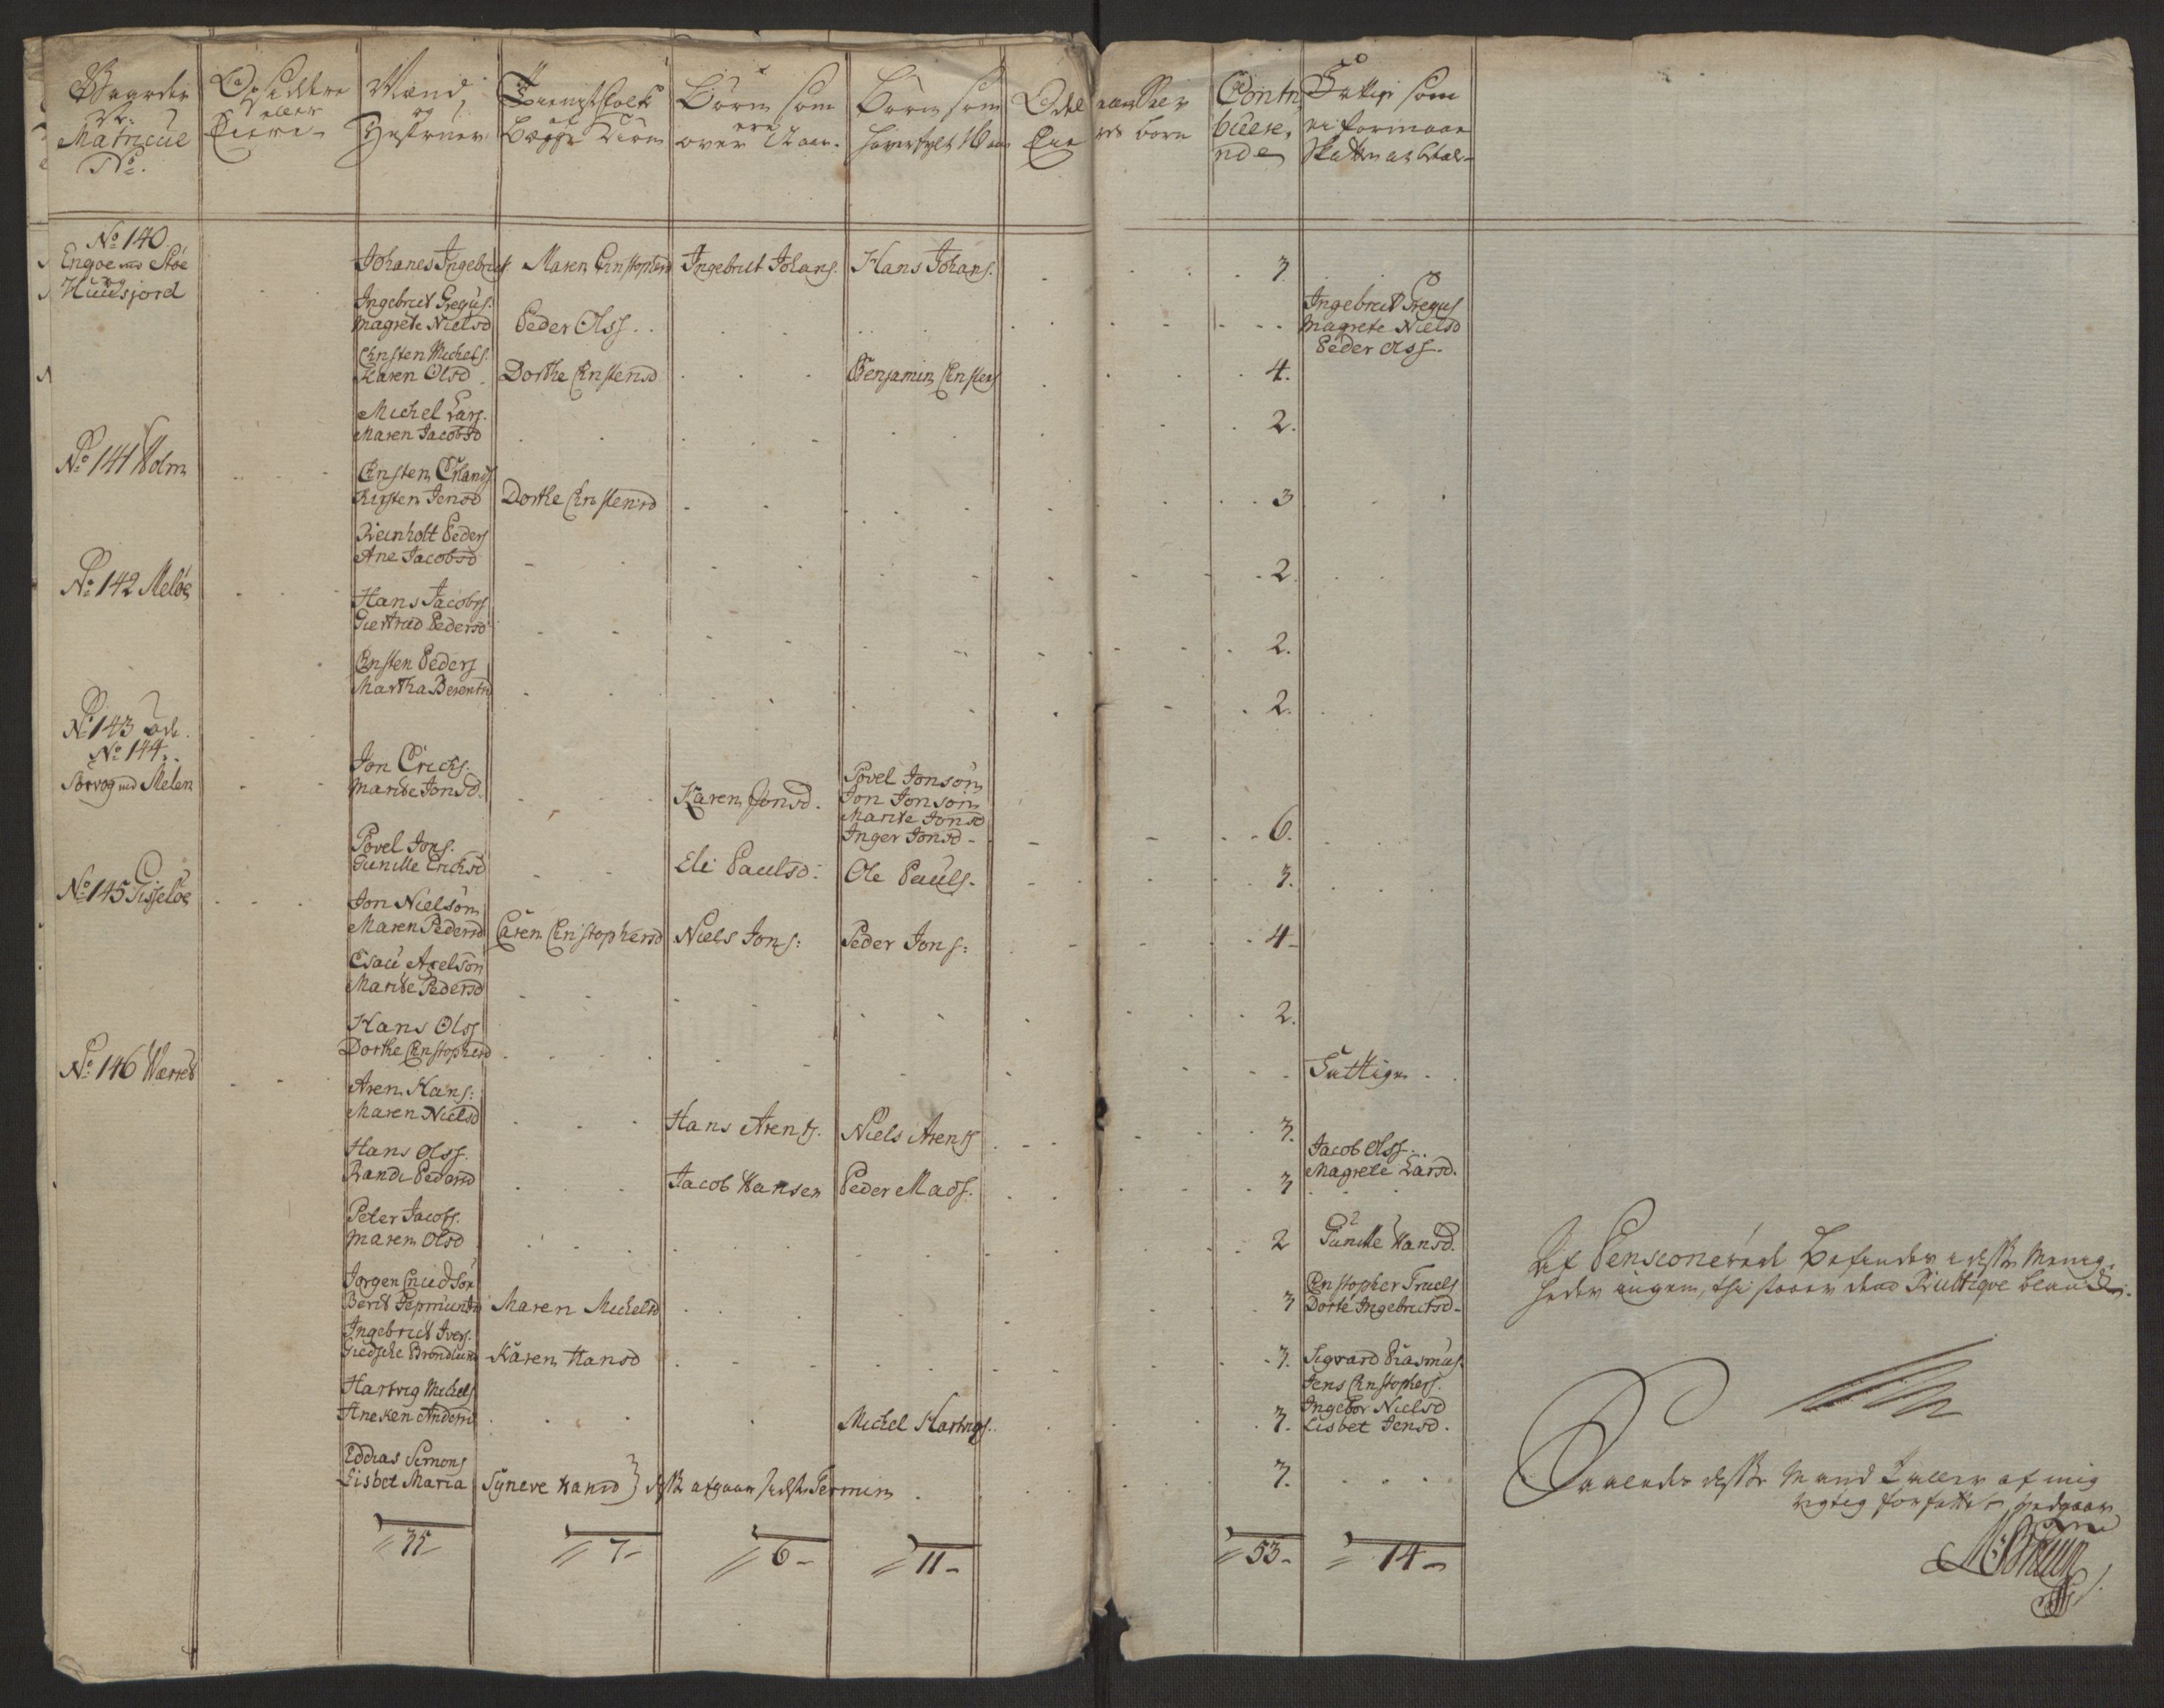 Gaarder
Matricul
No.
Opsiddere
eller
Eiere
Mænd
og
Hustruer
Tienistfolk
af
Begge Kiøn
Børn som
ere
over 12 aar.
Børn som
Contri
buere
nde
Fattige som
ei formaar
Skatten at betale
No 140.
Engøe med Støe
og
Huusjord
Johanes Ingebrets. Maren Christophersd Ingebret Johans. Hans Johans. 3
Ingebret Gregus.
Magrete Nielsd Peder Olss.
Ingebret Gregus
Magrete Nielsd
Peder Olss.
Christen Michels.
Karen Olsd Dorthe Christensd Benjamin Christens 4.
Michel Lars.
Maren Jacobsd 2.
No 141 Holm
Christen Erlands
Kirsten Jensd Dorthe Christensd 3
Reinholt Peders
Ane Jacobsd 2.
No 142 Meløe
Hans Jacobs
Giertrud Pedersd 2.
Christen Peders
Martha Berentsd 2.
No 143 øde.
No 144.
Sørvog med Melen
Jon Ericks.
Marite Jonsd. Karen Jonsd.
Povel Jonsøn
Jon Jonsøn
Marite Jonsd
Inger Jonsd 6.
Povel Jons.
Gunille Ericksd Eli Paulsd: Ole Pauls. 3.
No 145 Gisseløe
Jon Nielsøn
Maren Pedersd Caren Christophersd Niels Jons: Peder Jons: 4
Esau Axelsøn
Marite Pedersd 2.
Hans Olss
Dorthe Christophersd Fattige
No 146 Værret
Aren Hans:
Maren Nielsd Hans Arents. Niels Arents 3.
Hans Olss.
Randi Pedersd Jacob Hansen Peder Mads. 3
Jacob Olss.
Magrete Larsd.
Peter Jacobs.
Maren Olsd 2 Gunille Hansd.
Jørgen Cnudsøn
Berit Pepmunter Maren Michelsd 3
Christopher Truels
Dorte Ingebretsd
Ingebret Ivers.
Giedsche Brøndlund Karen Hansd 3. Sigvard Rasmus.
Hartvig Michels
Aneken Andersd Michel Hartvigs. 3.
Jens Christophers.
Ingebor Nielsd
Lisbet Jensd.
Eddias Simons
Lisbet Maria Syneve Hansd } disse afgaar sidste Termin 3.
35 7 6 11 53 14
Af Pensionerede Befindes i disse Menig-
heder ingen, thi staaer dend Rubrique blank.
Saaledes disse Mand Taller af mig
rigtig forfattet, vedgaar